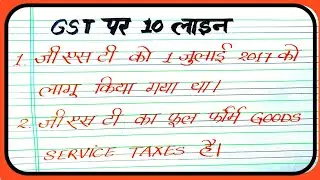 GST पर 10 लाइन
1. जी एस टी को 1 जुलाई 2017 को
लागू किया गया था।
2. जी एस टी का फूल फॉर्म GOODS
SERVICE TAXES है।